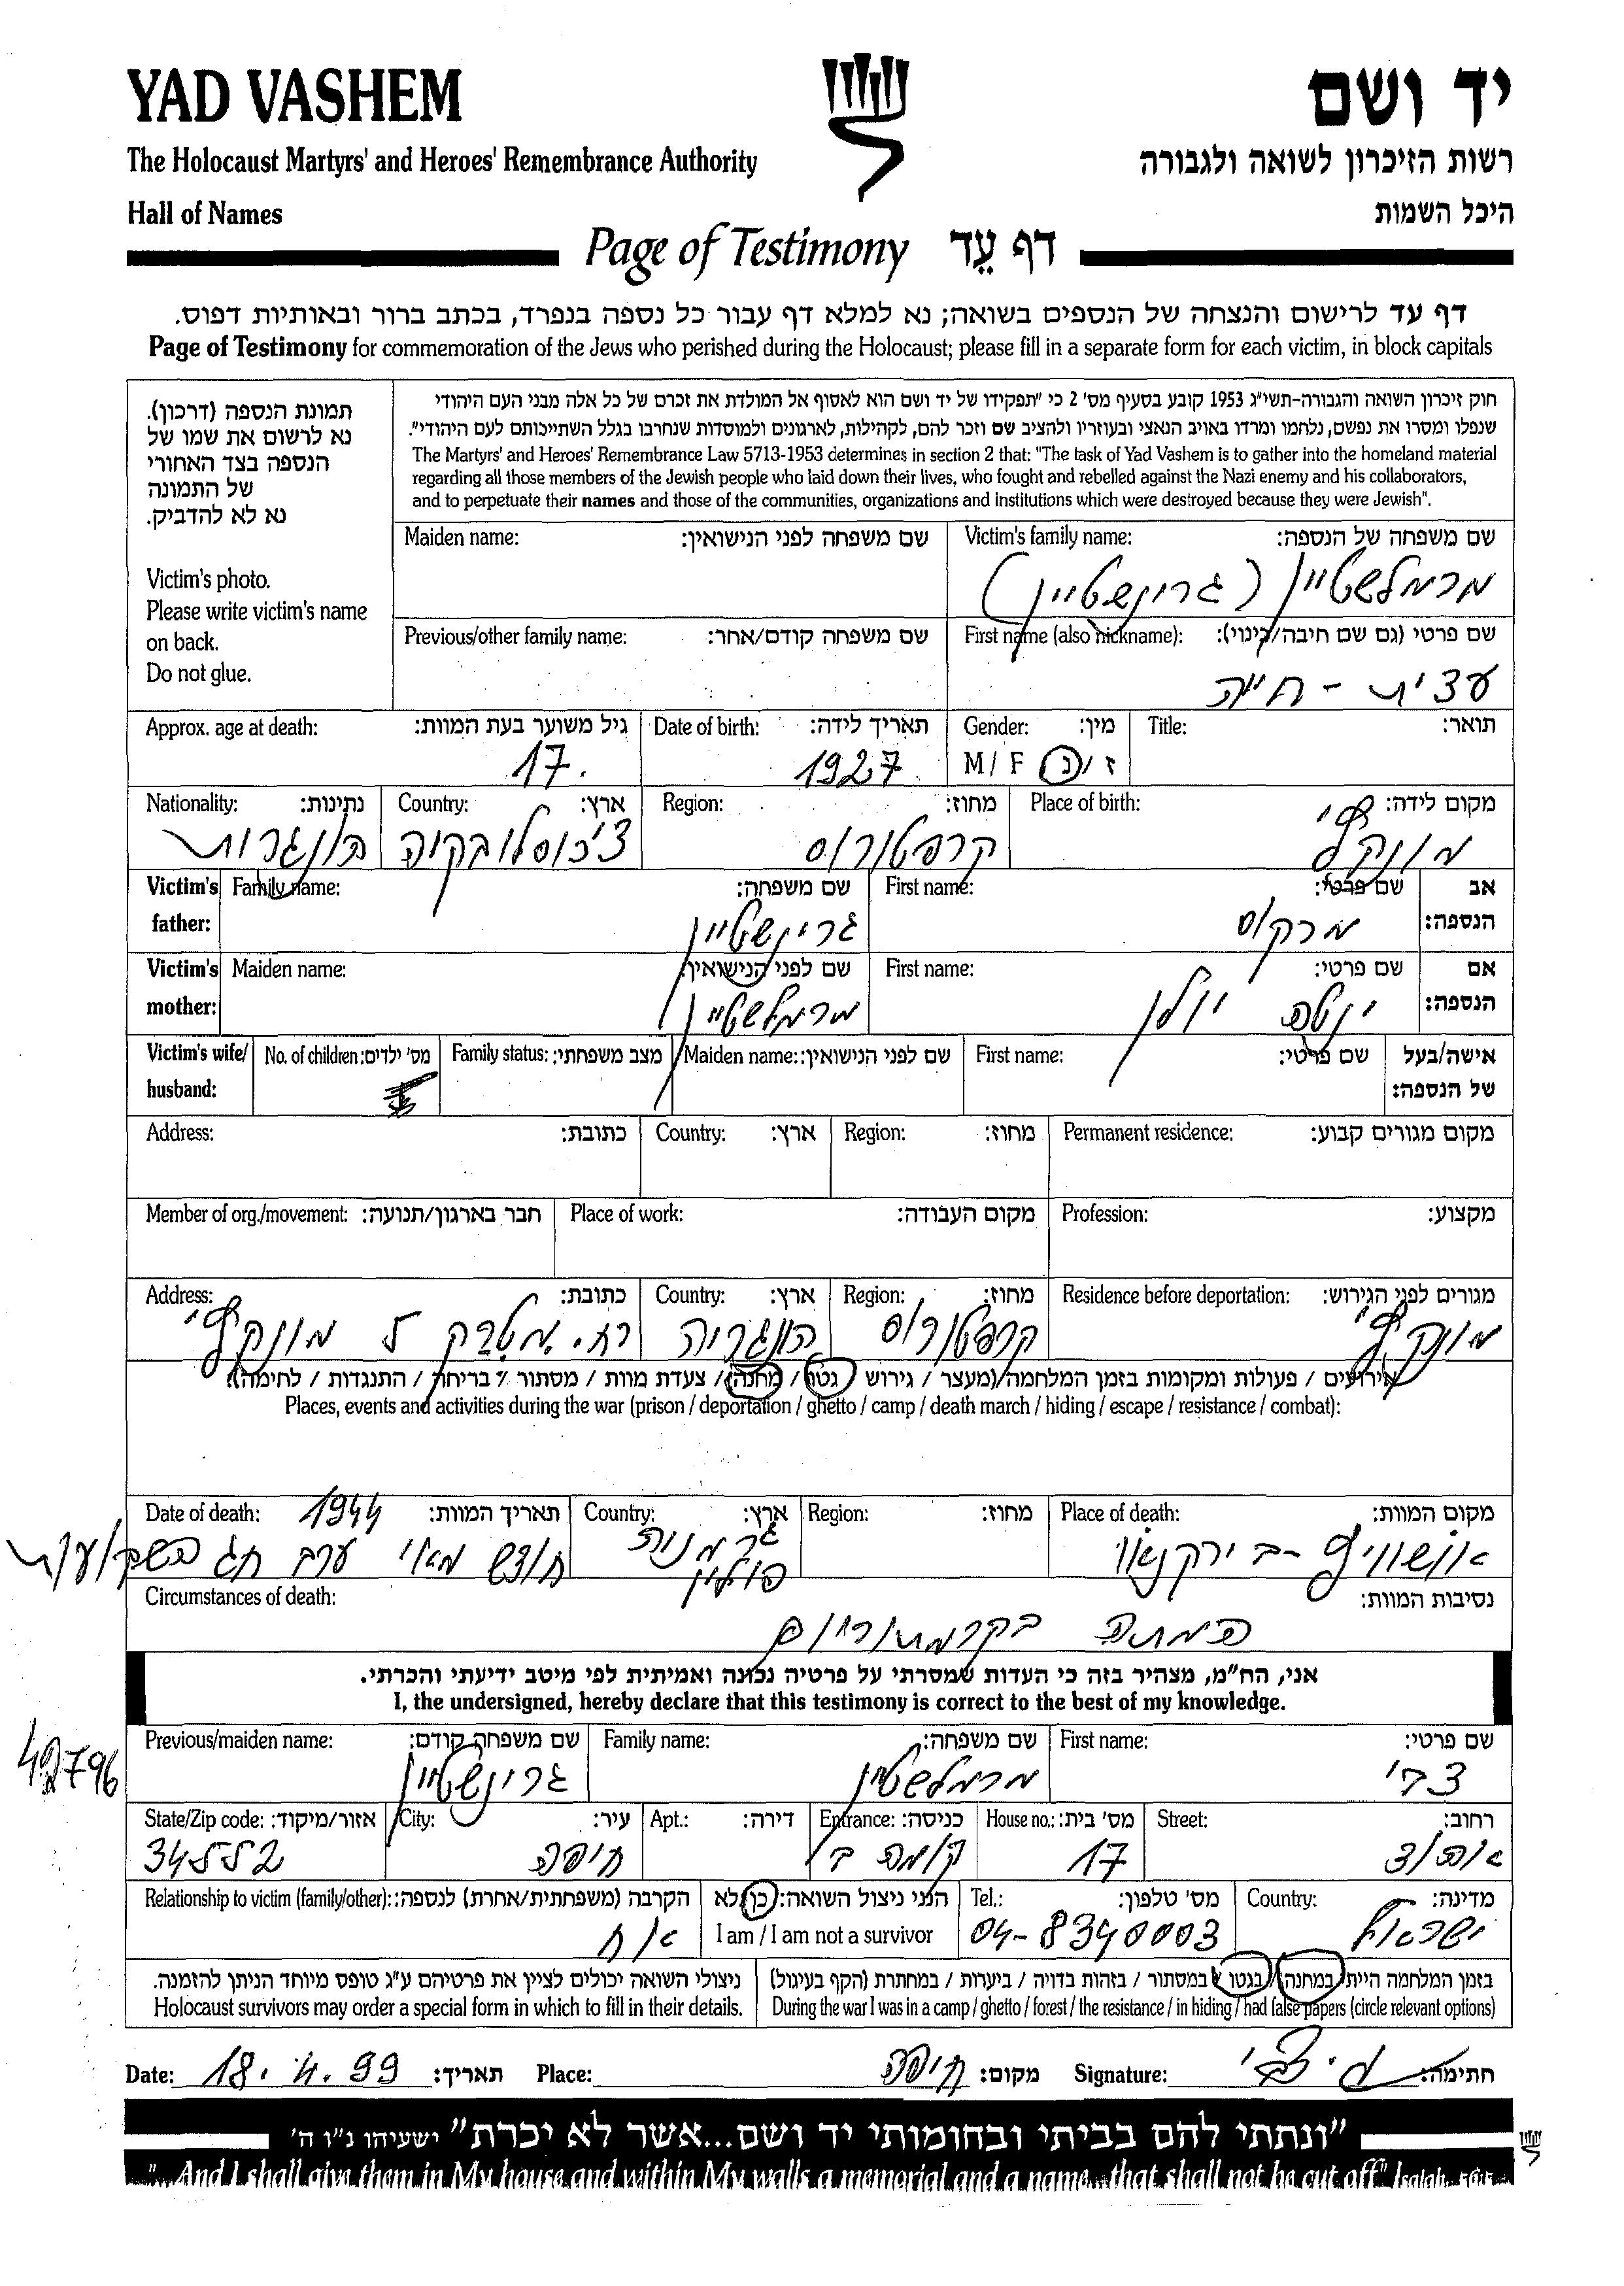 YAD VASHEM
יד ושם
The Holocaust Martyrs' and Heroes' Remembrance Authority
רשות הזיכרון לשואה ולגבורה
Hall of Names
היכל השמות
Page of Testimony דף עֵד
דף עד לרישום והנצחה של הנספים בשואה; נא למלא דף עבור כל נספה בנפרד, בכתב ברור ובאותיות דפוס.
Page of Testimony for commemoration of the Jews who perished during the Holocaust; please fill in a separate form for each victim, in block capitals
חוק זיכרון השואה והגבורה-תשי"ג 1953 קובע בסעיף מס' 2 כי "תפקידו של יד ושם הוא לאסוף אל המולדת את זכרם של כל אלה מבני העם היהודי
שנפלו ומסרו את נפשם, נלחמו ומרדו באויב הנאצי ובעוזריו ולהציב שם וזכר להם, לקהילות, לארגונים ולמוסדות שנחרבו בגלל השתייכותם לעם היהודי".
The Martyrs' and Heroes' Remembrance Law 5713-1953 determines in section 2 that: "The task of Yad Vashem is to gather into the homeland material
regarding all those members of the Jewish people who laid down their lives, who fought and rebelled against the Nazi enemy and his collaborators,
and to perpetuate their names and those of the communities, organizations and institutions which were destroyed because they were Jewish".
תמונת הנספה (דרכון).
נא לרשום את שמו של
הנספה בצד האחורי
של התמונה
נא לא להדביק.
Victim's photo.
Please write victim's name
on back.
Do not glue.
Victim's family name: שם משפחה של הנספה:
מרמלשטיין (גרינשטיין)
Maiden name: שם משפחה לפני הנישואין:
First name (also nickname): שם פרטי (גם שם חיבה/כינוי):
חיה
Previous/other family name: שם משפחה קודם/אחר:
Title: תואר:
Gender: מין:
M / F ז / נ
Date of birth: תאריך לידה:
1927
Approx. age at death: גיל משוער בעת המוות:
17.
Place of birth: מקום לידה:
מונקץ'
Region: מחוז:
קרפטורוס
Country: ארץ:
צ'כוסלובקיה
Nationality: נתינות:
הונגרית
Victim's father: אב הנספה:
First name: שם פרטי:
מרקוס
Family name: שם משפחה:
גרינשטיין
Victim's mother: אם הנספה:
First name: שם פרטי:
ינטה יולן
Maiden name: שם לפני הנישואין:
מרמלשטיין
Victim's wife/ husband: אישה/בעל של הנספה:
First name: שם פרטי:
Maiden name: שם לפני הנישואין:
Family status: מצב משפחתי:
No. of children: מס' ילדים:
Permanent residence: מקום מגורים קבוע:
Region: מחוז:
Country: ארץ:
Address: כתובת:
Profession: מקצוע:
Place of work: מקום העבודה:
Member of org./movement: חבר בארגון/תנועה:
Residence before deportation: מגורים לפני הגירוש:
מונקץ'
Region: מחוז:
קרפטורוס
Country: ארץ:
הונגריה
Address: כתובת:
רח. מונקץ'
אירועים / פעולות ומקומות בזמן המלחמה (מעצר / גירוש / גטו / מחנה / צעדת מוות / מסתור / בריחה / התנגדות / לחימה):
Places, events and activities during the war (prison / deportation / ghetto / camp / death march / hiding / escape / resistance / combat):
Place of death: מקום המוות:
אושוויץ - בירקנאו
Region: מחוז:
Country: ארץ:
גרמניה
פולין
Date of death: תאריך המוות:
1944
חודש מאי ערב חג השבועות
Circumstances of death: נסיבות המוות:
המתה בקרמטוריום
אני, הח"מ, מצהיר בזה כי העדות שמסרתי על פרטיה נכונה ואמיתית לפי מיטב ידיעתי והכרתי.
I, the undersigned, hereby declare that this testimony is correct to the best of my knowledge.
42796
First name: שם פרטי:
צבי
Family name: שם משפחה:
מרמלשטיין
Previous/maiden name: שם משפחה קודם:
גרינשטיין
Street: רחוב:
House no.: מס' בית:
17
Entrance: כניסה:
קומה ב
Apt.: דירה:
City: עיר:
חיפה
State/Zip code: אזור/מיקוד:
34552
Country: מדינה:
ישראל
Tel.: מס' טלפון:
04-8340003
הנני ניצול השואה: כן/לא
I am / I am not a survivor
Relationship to victim (family/other): הקרבה (משפחתית/אחרת) לנספה:
אח
בזמן המלחמה הייתי במחנה / בגטו / במסתור / בזהות בדויה / ביערות / במחתרת (הקף בעיגול)
During the war I was in a camp / ghetto / forest / the resistance / in hiding / had false papers (circle relevant options)
ניצולי השואה יכולים לציין את פרטיהם ע"ג טופס מיוחד הניתן להזמנה.
Holocaust survivors may order a special form in which to fill in their details.
Date: 18.4.99 תאריך: Place: חיפה מקום: Signature: חתימה:
"ונתתי להם בביתי ובחומותי יד ושם...אשר לא יכרת" ישעיהו נ"ו ה'
"...And I shall give them in My house and within My walls a memorial and a name...that shall not be cut off" Isaiah 56:5